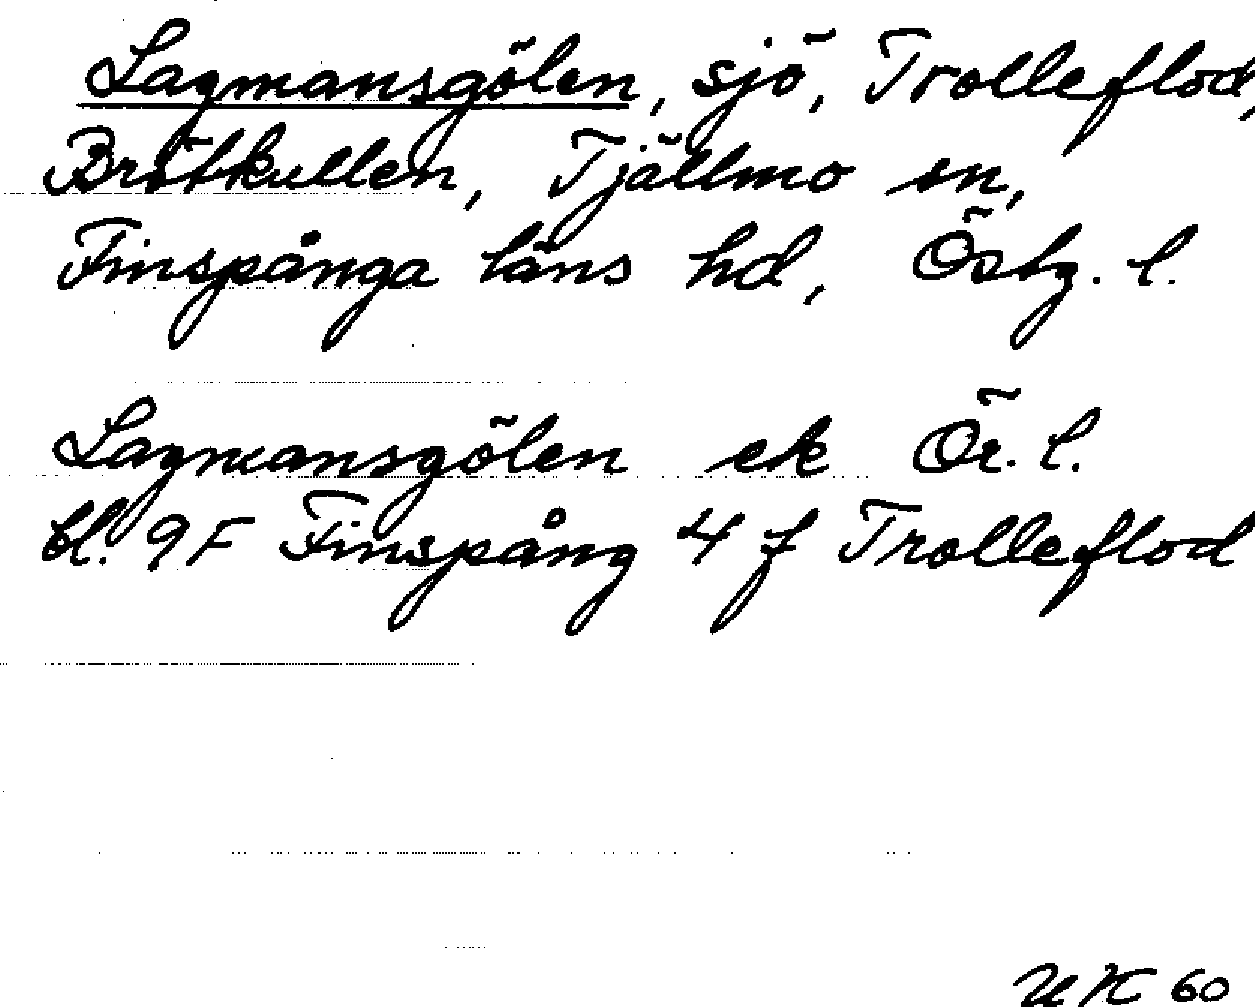 Lagmansgölen, sjö, Trolleflod,
Brötkullen, Tjällmo sn,
Finspånga läns hd, Östg. l.
Lagmansgölen ek Ör. l.
bl. 9F Finspång 4 f Trolleflod
UK 60